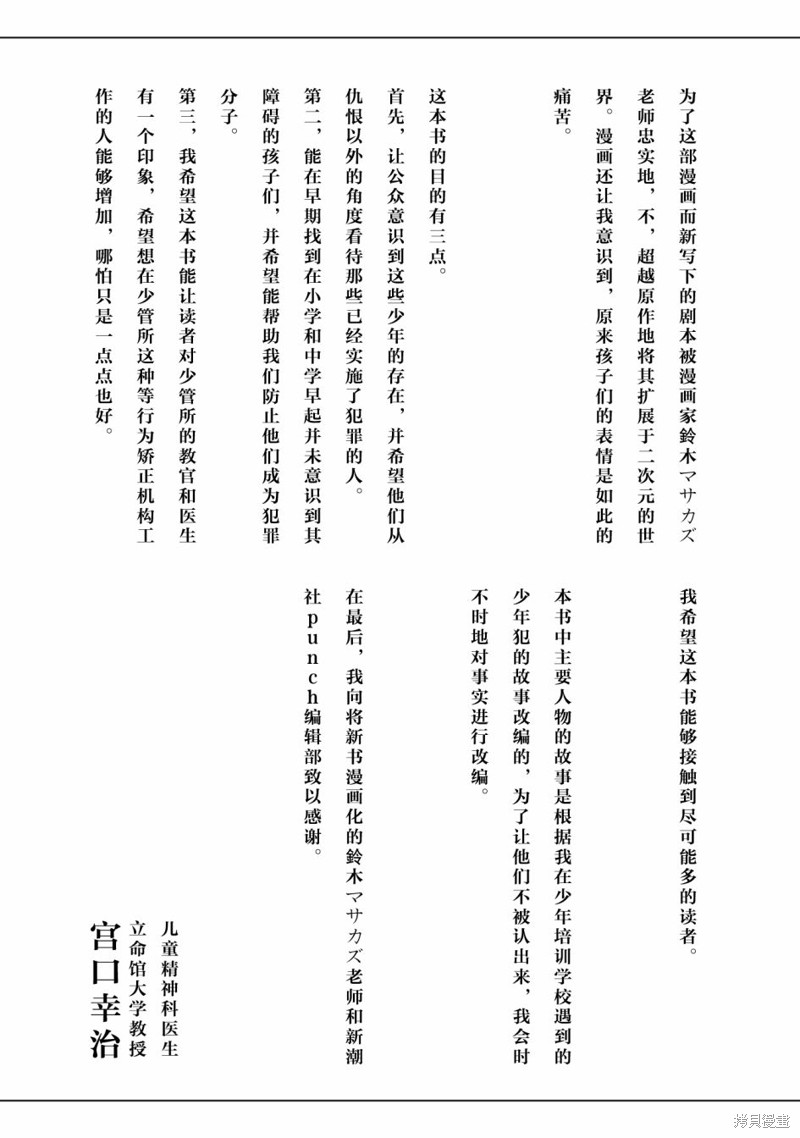 为了这部漫画而新写下的剧本被漫画家鈴木マサカズ
老师忠实地，不，超越原作地将其扩展于二次元的世
界。漫画还让我意识到，原来孩子们的表情是如此的
痛苦。
这本书的目的有三点。
首先，让公众意识到这些少年的存在，并希望他们从
仇恨以外的角度看待那些已经实施了犯罪的人。
第二，能在早期找到在小学和中学早起并未意识到其
障碍的孩子们，并希望能帮助我们防止他们成为犯罪
分子。
第三，我希望这本书能让读者对少管所的教官和医生
有一个印象，希望想在少管所这种等行为矫正机构工
作的人能够增加，哪怕只是一点点也好。
我希望这本书能够接触到尽可能多的读者。
本书中主要人物的故事是根据我在少年培训学校遇到的
少年犯的故事改编的，为了让他们不被认出来，我会时
不时地对事实进行改编。
在最后，我向将新书漫画化的鈴木マサカズ老师和新潮
社punch编辑部致以感谢。
儿童精神科医生
立命馆大学教授
宫口幸治
拷貝漫畫